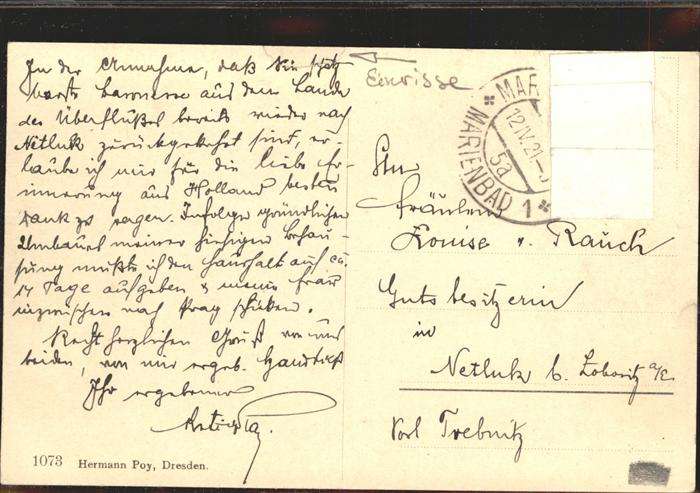 In der Annahme, daß Sie schätz
barste Baronesse aus dem Lande
des Überflußes bereits wieder nach
Netluk zurückgekehrt sind, er-
laube ich mir für die liebe Er-
innerung aus Holland besten
Dank zu sagen. Infolge gründlichen
Umbaues meiner hiesigen Behau-
sung mußte ich den Haushalt auf ca.
14 Tage aufgeben & meine Frau
inzwischen nach Prag schicken.
Recht herzlichen Gruß von uns
beiden, von mir ergeb. Handkuß
Ihr ergebener
1073 Hermann Poy, Dresden.
Einrisse
MAR
12.IV.21
5a
MARIENBAD 1
Fräulein
Louise v. Rauch
Gutsbesitzerin
in
Netluk b. Lobositz a/E.
Post Trebnitz